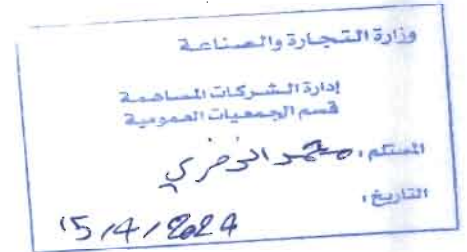 وزارة التجارة والصناعة
إدارة الشركات المساهمة
قسم الجمعيات العمومية
المستلم، محمد الخضري
التاريخ،
15/4/2024